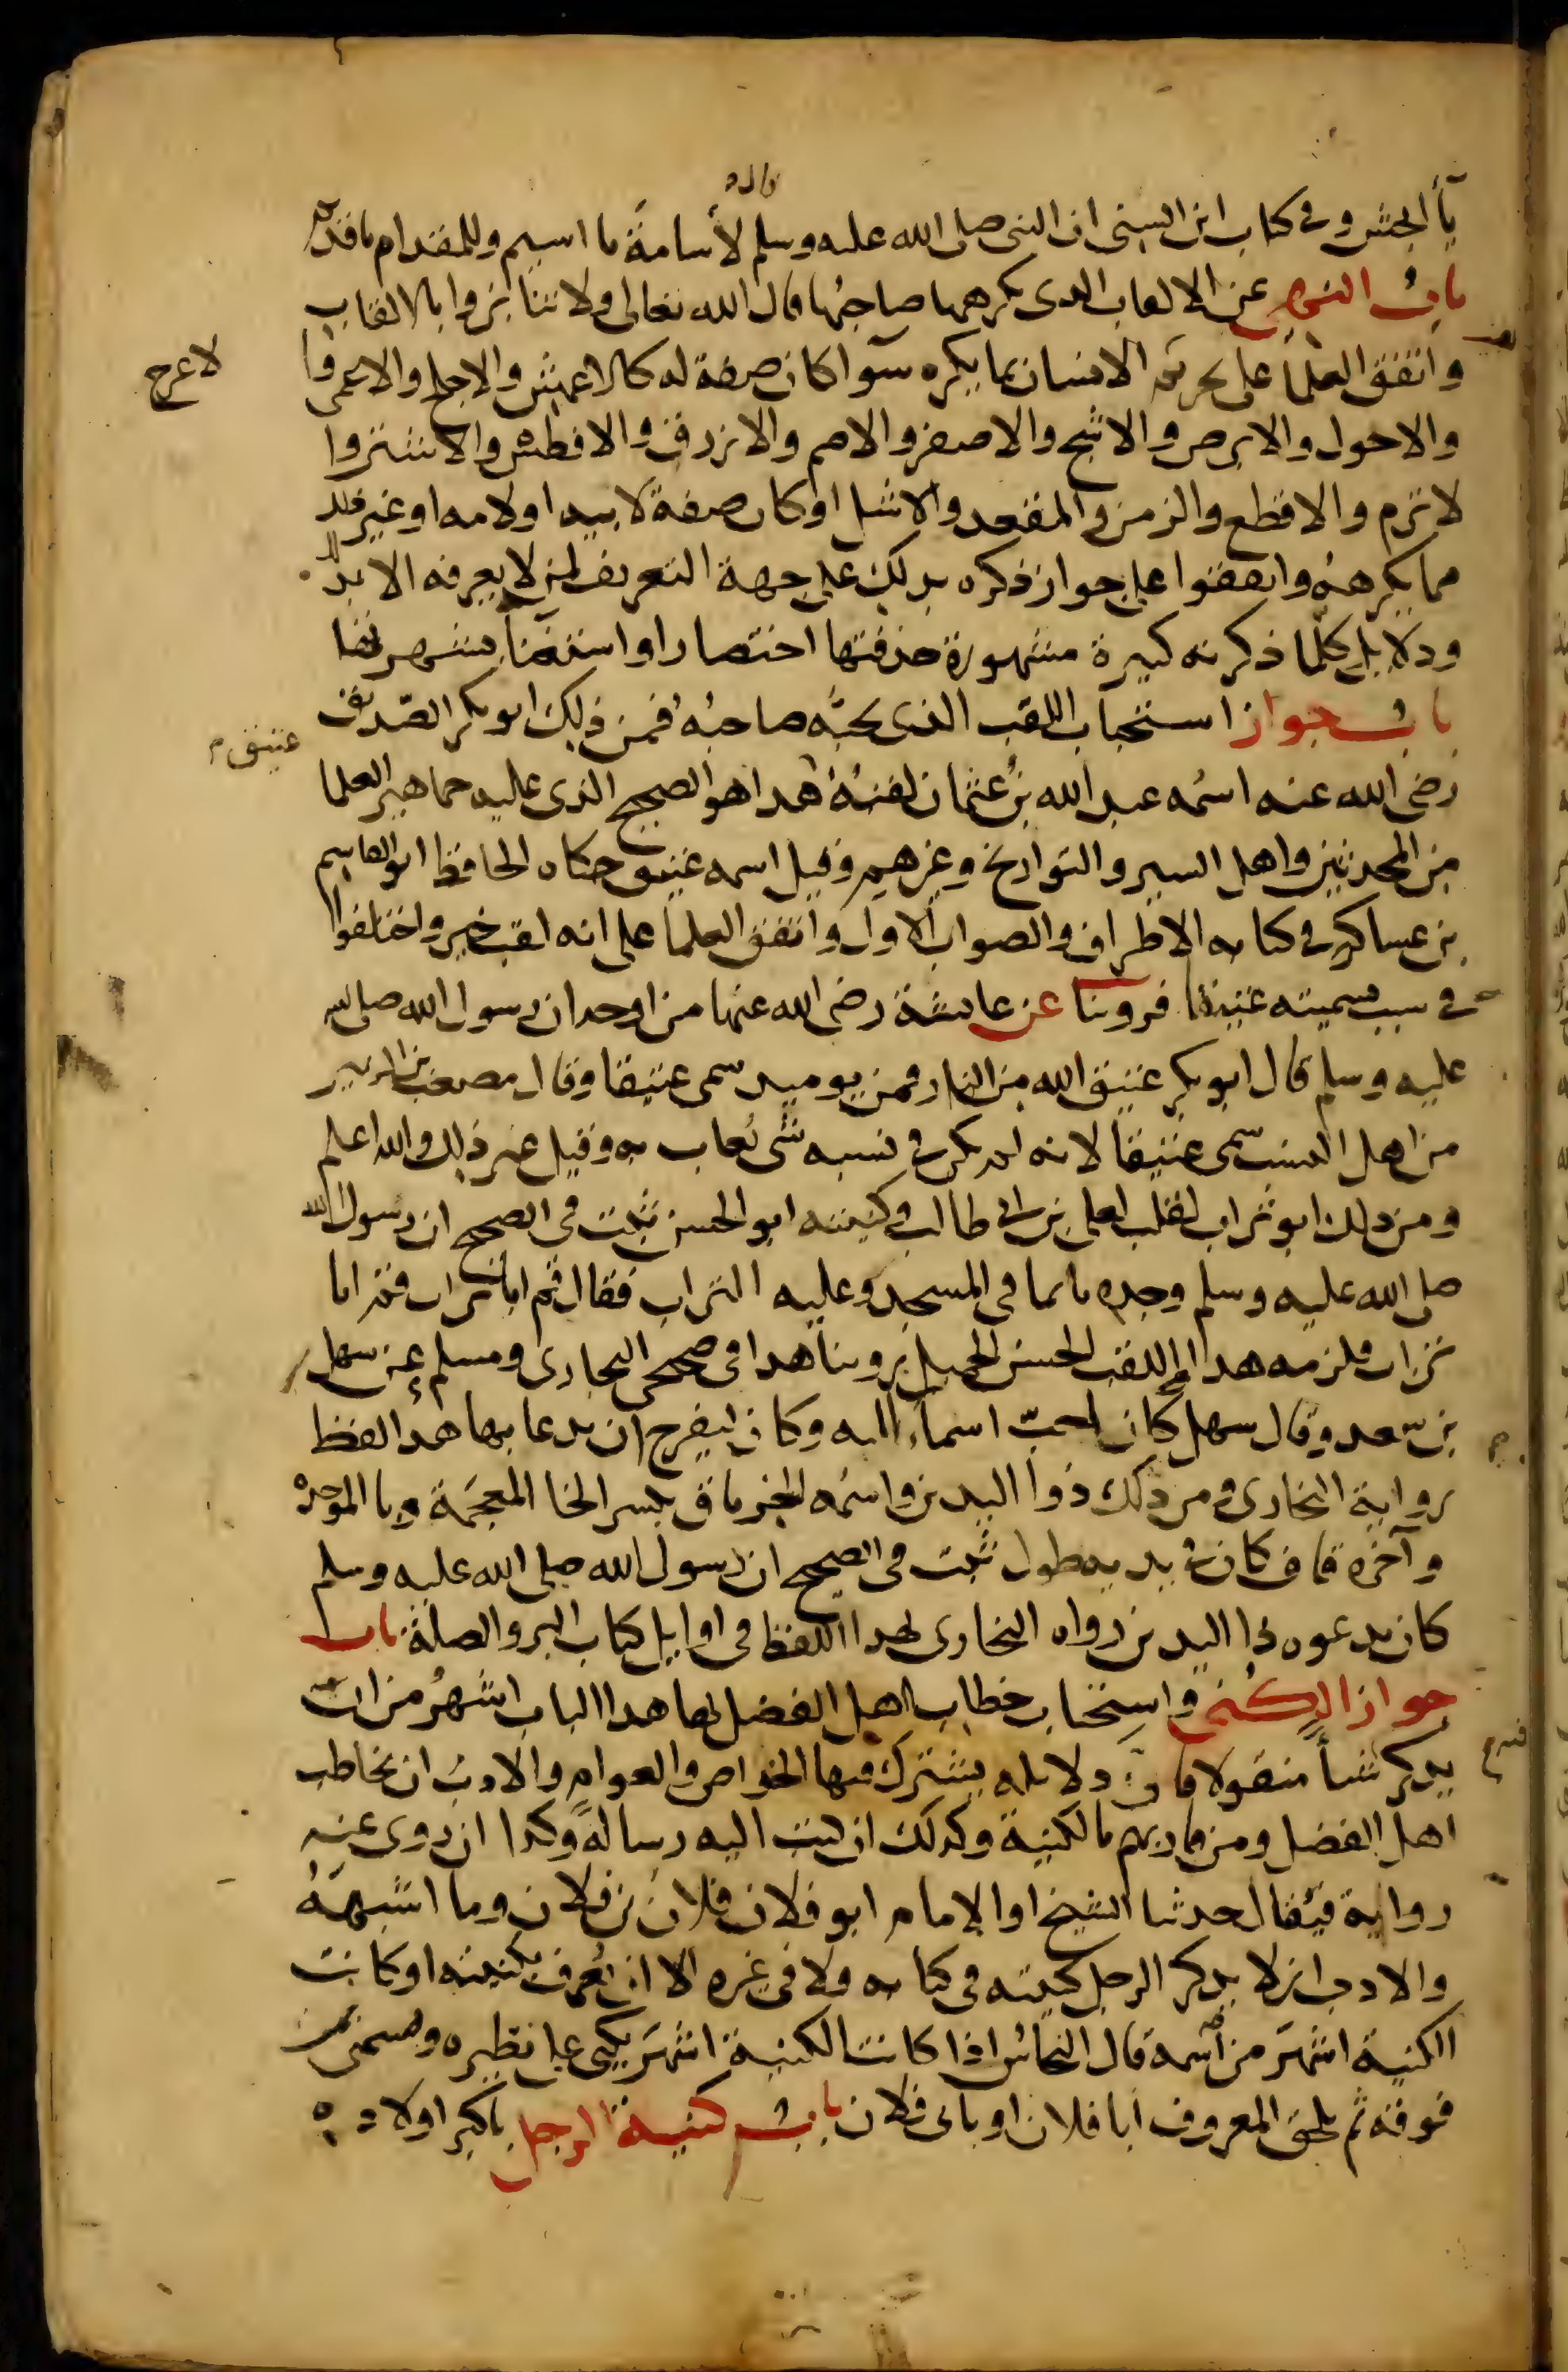 قال
يا أنجش وفي كتاب ابن السني ان النبي صلى الله عليه وسلم لأسامة يا اسيم وللمقدام يا قديم
باب النهي عن الالقاب الذي يكرهها صاحبها قال الله تعالى ولا تنابزوا بالالقاب
واتفق العلما على تحريم الانسان بما يكره سوآ كان صفة له كالاعمش والاجلح والاعمى وا
لاعرج
والاحول والابرص والاشج والاصفر والاصم والازرق والافطس والاشتر وا
لاثرم والاقطع والزمن والمقعد والاشل او كان صفة لابيه او لامه او غير ذلك
مما يكرهه واتفقوا على جواز ذكره بذلك على جهة التعريف لمن لا يعرفه الا بذلك
ودلايل كلما ذكرته كثيرة مشهورة حذفتها اختصارا واستغناً بشهرتها
باب جواز استحباب اللقب الذي يحبّه صاحبُه فمن ذلك ابو بكر الصّديق
رضي الله عنه اسمُه عبد الله بن عُثمان لقبُهُ هذا هو الصحيح الذي عليه جماهير العلما
عتيق
من المحدثين واهل السير والتواريخ وغيرهم وقيل اسمه عتيق حكاه الحافظ ابو القاسم
بن عساكر في كتابه الاطراف والصواب الاول واتفق العلما على انه لقب خير واختلفوا
في سبب تسميته عتيقا فروينا عن عايشة رضي الله عنها من اوجه ان رسول الله صلى الله
عليه وسلم قال ابو بكر عتيق الله من النار فمن يوميد سمى عتيقا وقال مصعب بن الزبير
من اهل النسب سمى عتيقا لانه لم يكن في نسبه شى يُعاب به وقيل غير ذلك والله اعلم
ومن ذلك ابو تراب لقب لعلي بن ابي طالب وكنيته ابو الحسن ثبت في الصحيح ان رسول الله
صلى الله عليه وسلم وجده نايما في المسجد وعليه التراب فقال قُم ابا تراب قم ابا
تراب فلزمه هذا اللقب الحسن الجميل روينا هذا في صحيحي البخارى ومسلم عن سهل
بن سعد وقال سهل كان لحبّ اسماءَ اليه وكان ليفرح ان يدعا بها هذا لفظ
رواية البخارى ومن ذلك ذوا اليدين واسمُه الخرباق بكسر الخا المعجَمة وبا الموحدة
وآخره قاف كان في يديه طول ثبت في الصحيح ان رسول الله صلى الله عليه وسلم
كان يدعوه ذا اليدين رواه البخارى لهذا اللفظ في اوايل كتاب البر والصلة باب
جواز الكُنى واستحباب خطاب اهل الفضل بها هذا الباب اشهرُ من ان
يذكر شيأ منقولا فان دلايله يشترك فيها الخواص والعوام والادبُ ان يخاطب
اهل الفضل ومن قاربهم بالكنية وكذلك ان كتب اليه رسالةً وكذا ان روى عنه
رواية فيُقال حدثنا الشيخ او الإمام ابو فلان فلان بن فلان وما اشبهَهُ
والادب ان لا يذكر الرجل كنيته في كتابه ولا في غيره الا ان يُعرف بكنيته او كانت
الكنية اشهَرَ من اسمه قال النحاسُ اذا كانت الكنية اشهَرَ يكنى على نظيره ويسمى لمن
فوقه ثم يلحق المعروف أبا فلان او بابى فلان باب كنية الرجل باكبر اولاده